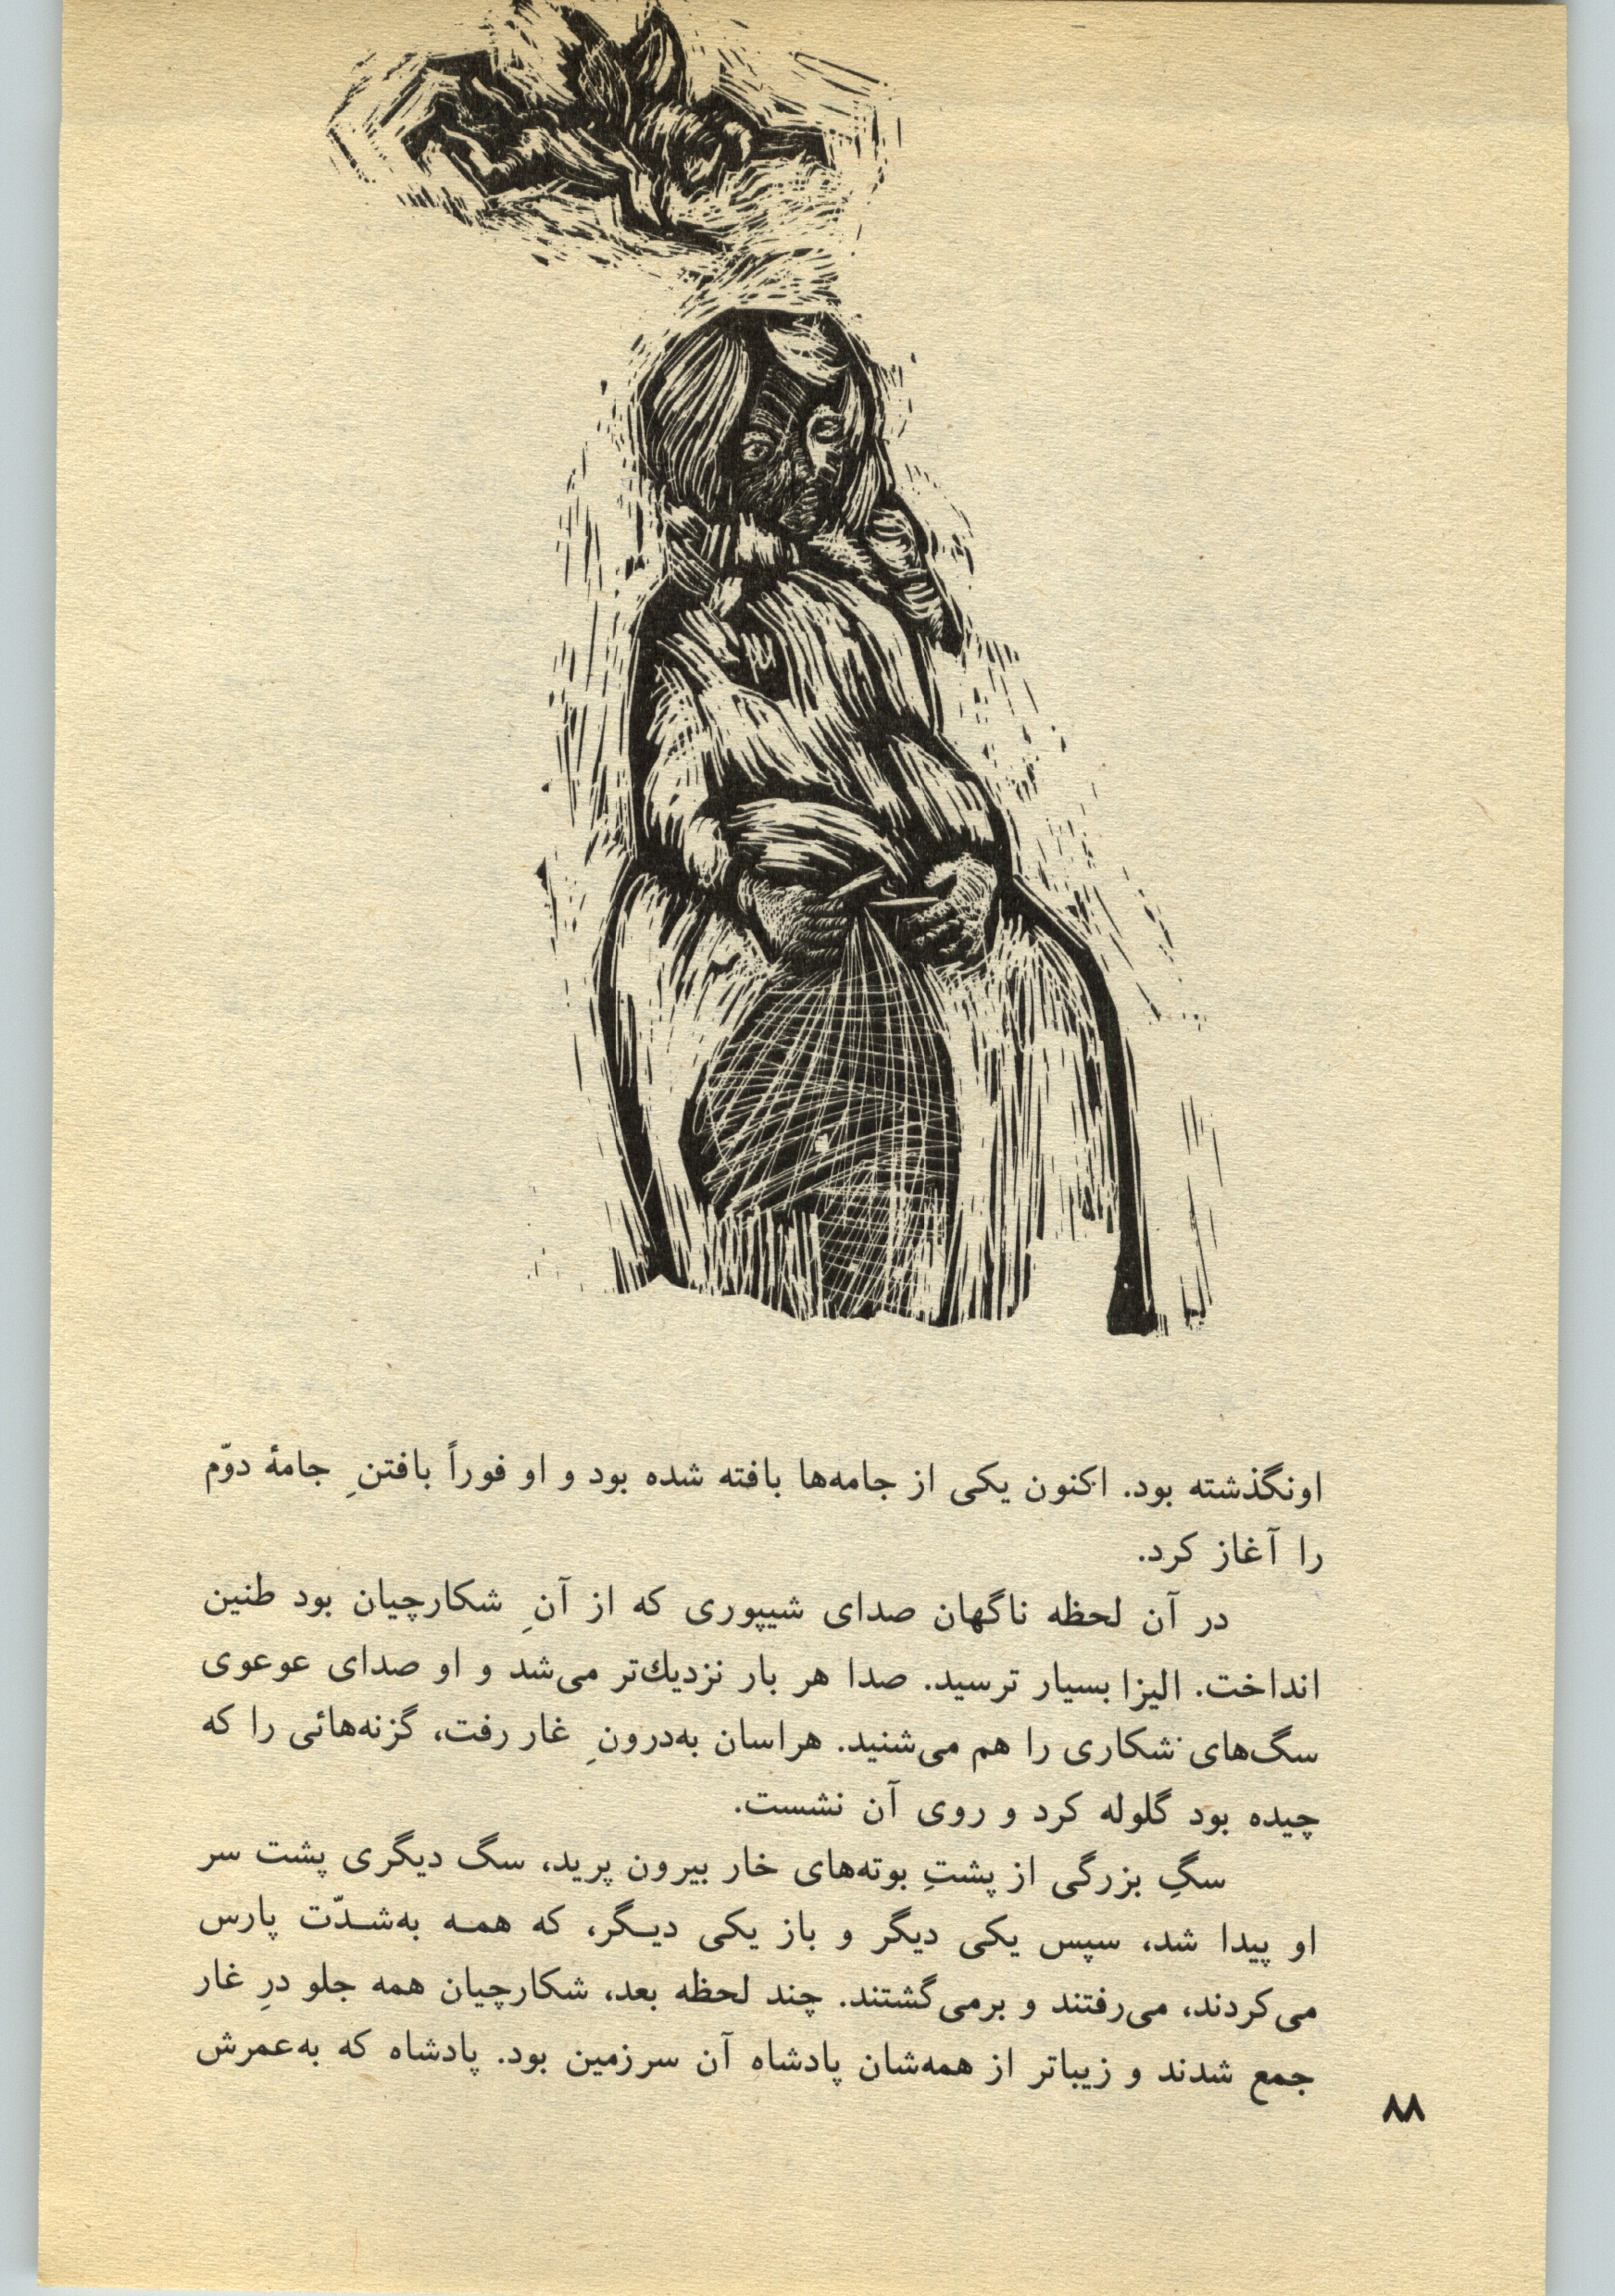 اونگذشته بود. اکنون یکی از جامه‌ها بافته شده بود و او فوراً بافتنِ جامهٔ دوّم
را آغاز کرد.
در آن لحظه ناگهان صدای شیپوری که از آنِ شکارچیان بود طنین
انداخت. الیزا بسیار ترسید. صدا هر بار نزدیك‌تر می‌شد و او صدای عوعوی
سگ‌های شکاری را هم می‌شنید. هراسان به‌درونِ غار رفت، گزنه‌هائی را که
چیده بود گلوله کرد و روی آن نشست.
سگِ بزرگی از پشتِ بوته‌های خار بیرون پرید، سگ دیگری پشت سر
او پیدا شد، سپس یکی دیگر و باز یکی دیـگر، که همـه به‌شـدّت پارس
می‌کردند، می‌رفتند و برمی‌گشتند. چند لحظه بعد، شکارچیان همه جلو درِ غار
جمع شدند و زیباتر از همه‌شان پادشاه آن سرزمین بود. پادشاه که به‌عمرش
۸۸